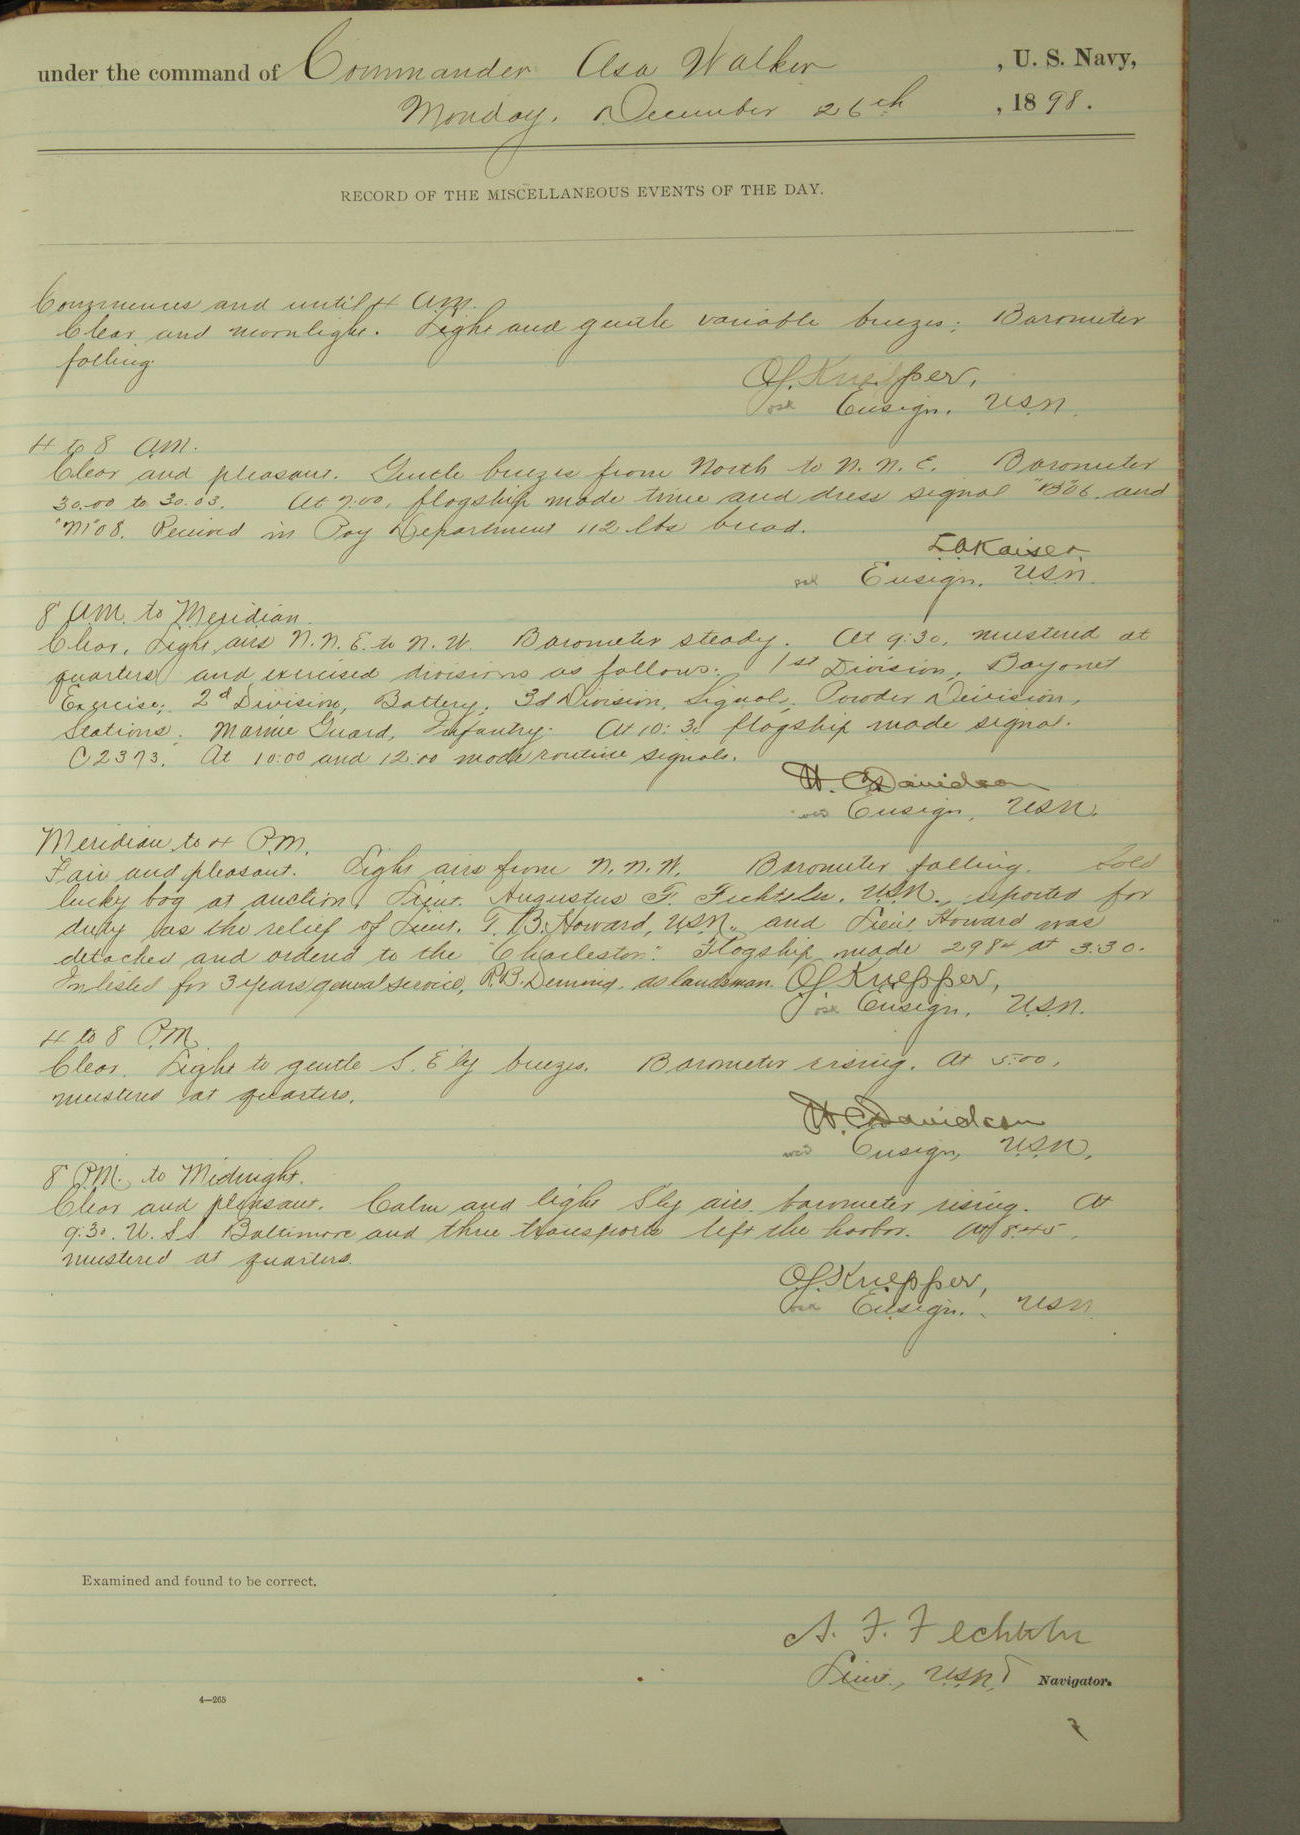 under the command of Commander Asa Walker , U. S. Navy,
Monday, December 26th , 1898.
RECORD OF THE MISCELLANEOUS EVENTS OF THE DAY.
Commences and until 4 A.M.
Clear and moonlight. Light and gentle variable breezes; Barometer
falling
O.J. Knepper,
Ensign, U.S.N.
4 to 8 A.M.
Clear and pleasant. Gentle breezes from North to N.N.E. Barometer
30.00 to 30.03. At 7.00, flagship made time and dress signal and
"M"08. Received in Pay Department 112 lbs bread.
L.A. Kaiser,
Ensign, U.S.N.
8 A.M. to Meridian.
Clear. Light airs N.N.E. to N.W. Barometer steady. At 9:30, mustered at
quarters and exercised divisions as follows: 1st Division, Bayonet
Exercise; 2d Division, Battery; 3d Division, Signals; Powder Division,
Stations; Marine Guard, Infantry. At 10:30 flagship made signal.
C2373. At 10:00 and 12:00 made routine signals.
W. C. Davidson
Ensign, U.S.N.
Meridian to 4 P.M.
Fair and pleasant. Light airs from N.N.W. Barometer falling. Sold
lucky bag at auction. Lieut. Augustus F. Fechteler, U.S.N., reported for
duty as the relief of Lieut. T. B. Howard, U.S.N., and Lieut. Howard was
detached and ordered to the "Charleston". Flagship made 298 at 3:30.
Enlisted for 3 years general service, R.B. Deming, as landsman. O.J. Knepper,
Ensign, U.S.N.
4 to 8 P.M.
Clear. Light to gentle S.E'ly breezes. Barometer rising. At 5:00,
mustered at quarters.
W. C. Davidson
Ensign, U.S.N.
8 P.M. to Midnight.
Clear and pleasant. Calm and light S'ly airs. barometer rising. At
9:30. U.S.S. Baltimore and three transports left the harbor. At 8:45,
mustered at quarters.
O.J. Knepper,
Ensign, U.S.N.
Examined and found to be correct.
A. F. Fechteler
Lieut., U.S.N., Navigator.
4—268